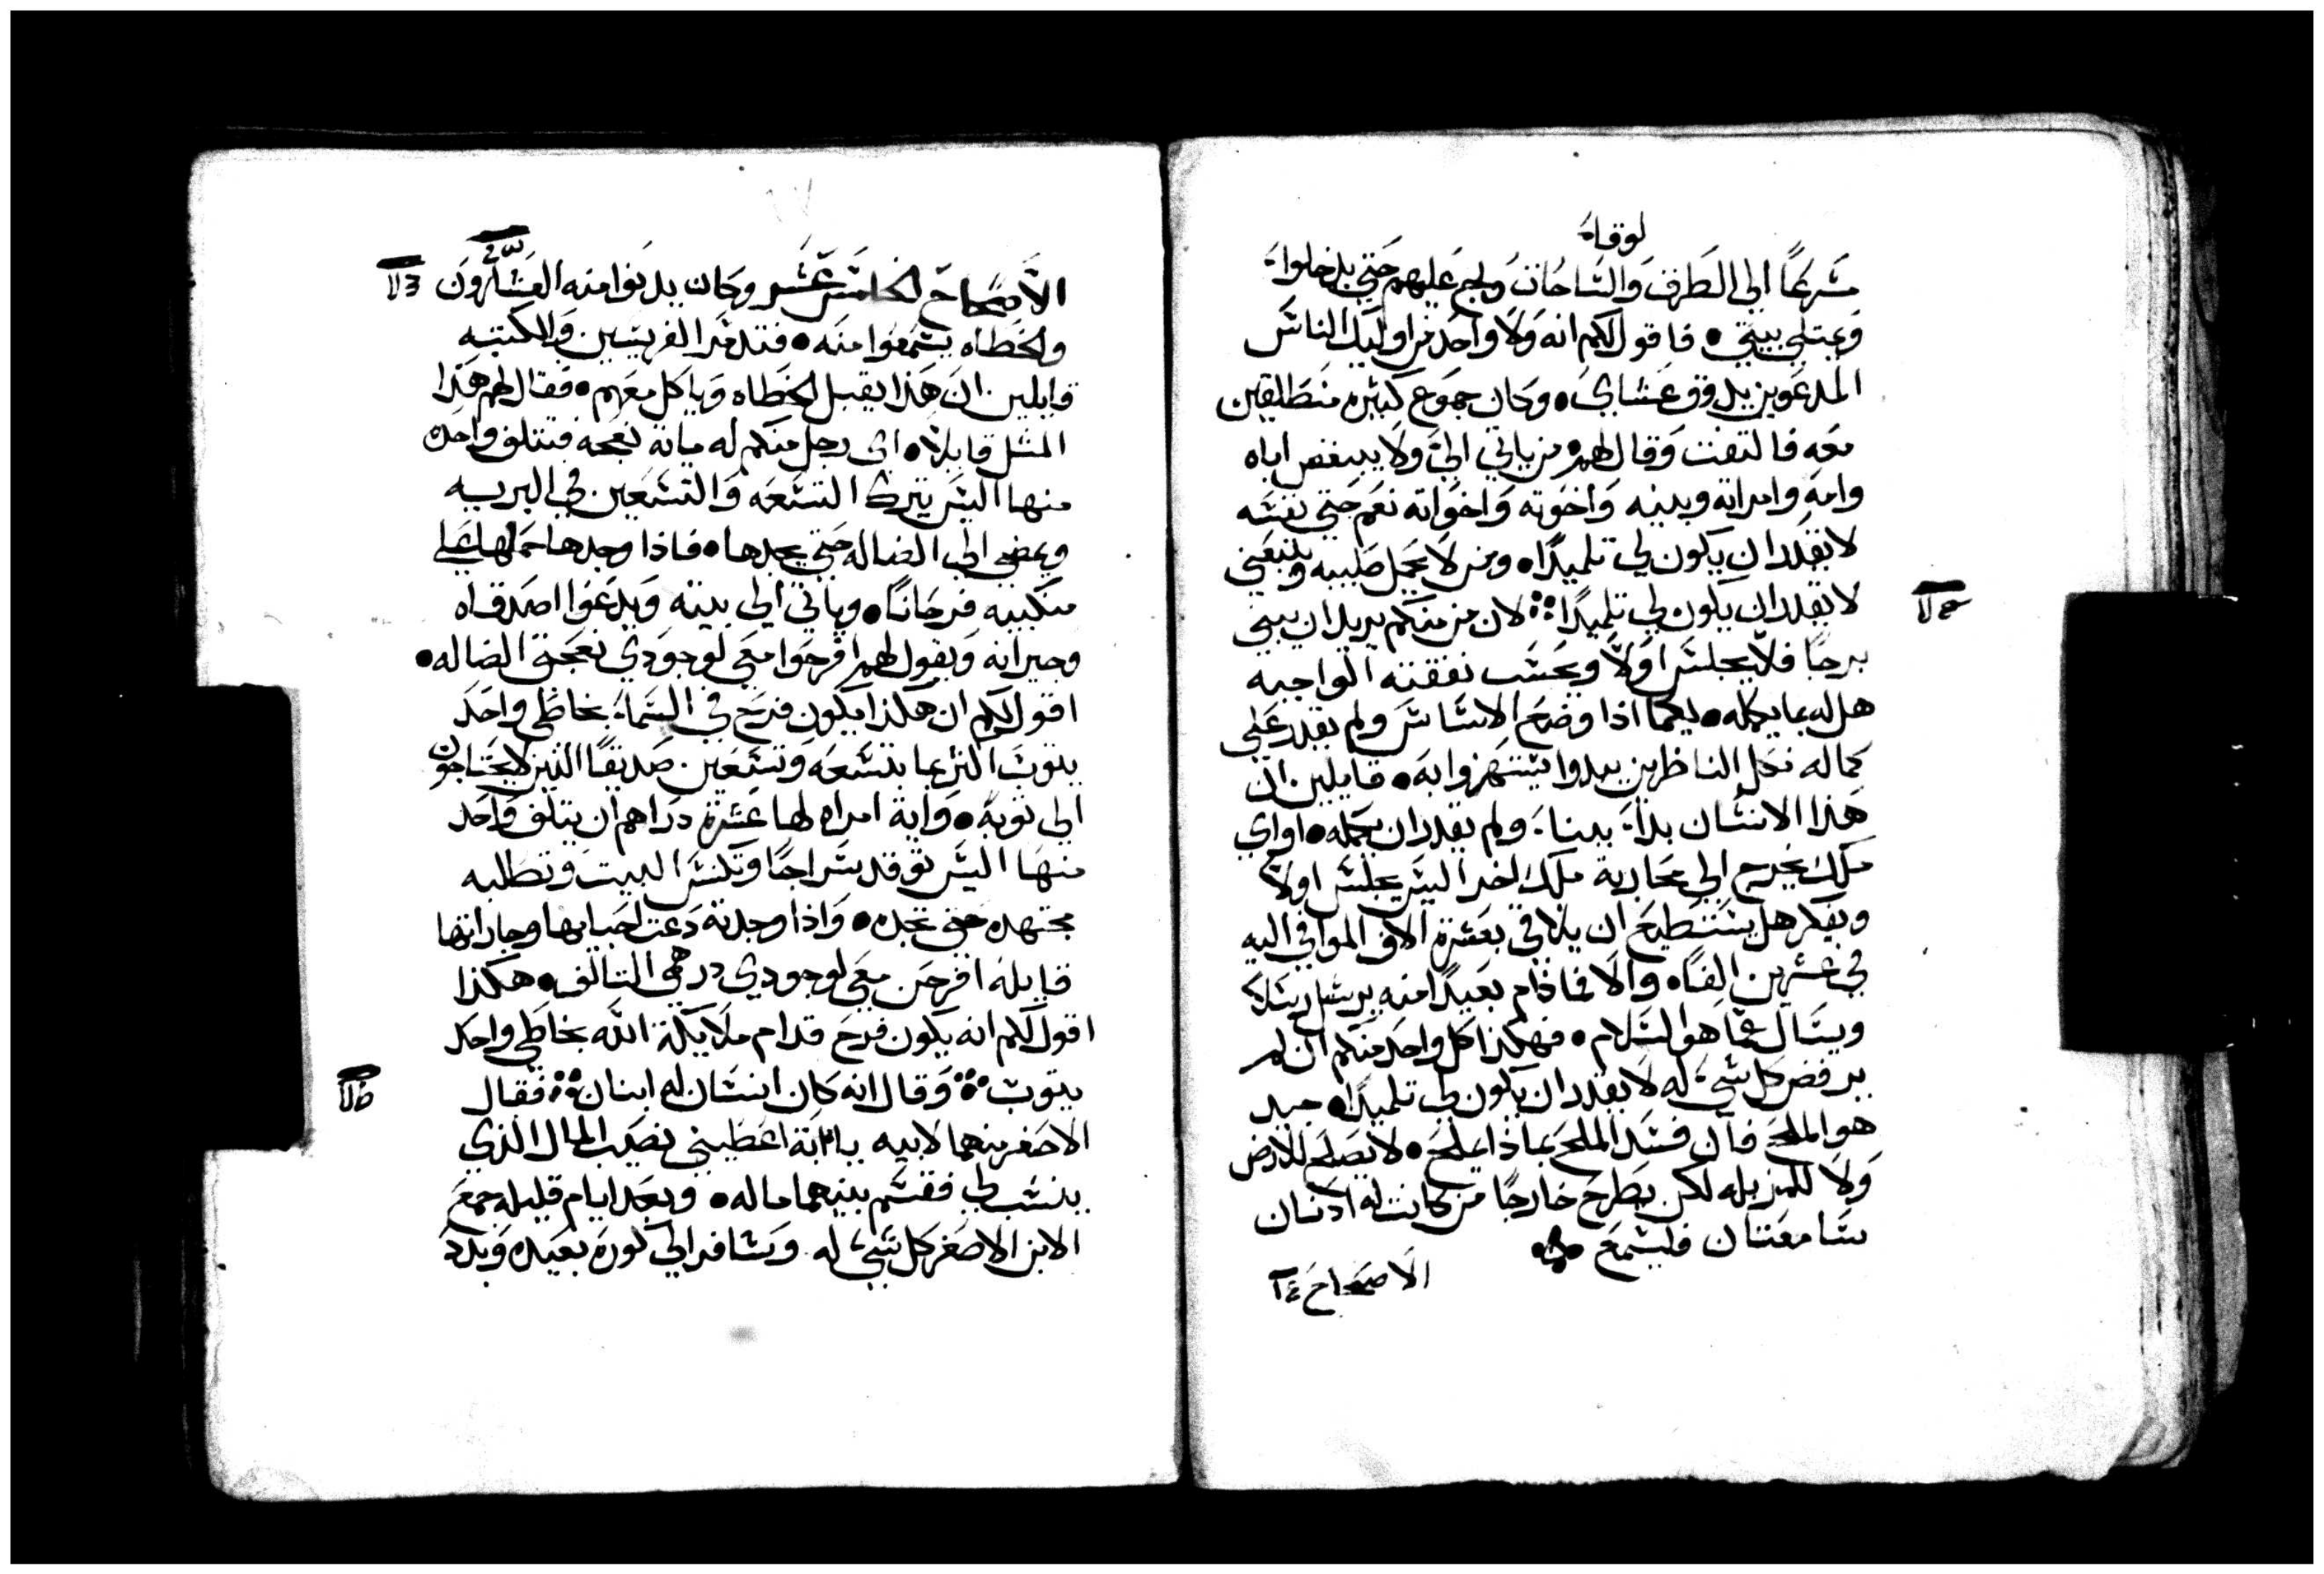 لوقاء
سَرعًا الى الطرق والساحات ولج عليهم حتي يدخلوا
ويمتلي بيتي • فاقول لكم انه ولا واحد من اوليك الناس
المدعوين يدوق عشاي • وكان جموع كثيره منطلقين
معه فالتفت وقال لهم من ياتي الي ولا يبغض اباه
وامه وامراته وبنيه واخوته واخواته نعم حتي نفسه
لا يقدر ان يكون لي تلميدًا • ومن لا يحمل صليبه ويتبعني
لا يقدر ان يكون لي تلميدًا لان من منكم يريد ان يبني
برجًا فلا يجلس اولًا ويحسب نفقته الواجبه
هل له بما يكمله • ليكما اذا وضع الاساس ولم يقدر على
كماله فكل الناظرين يبدوا يستهزوا به • قايلين ان
هذا الانسان بدا بينا ولم يقدر ان يكمله • او اي
ملك يخرج الي محاربة ملك اخر اليس يجلس اولًا
ويفكر هل يستطيع ان يلاقي بعشرة الاف الموافي اليه
في عشرين الفًا • والا فما دام بعيدًا منه يرسل رسلًا
ويسال عما هو السلام • فهكذا كل واحد منكم ان لم
يرفض كل شي له لا يقدر ان يكون لي تلميدًا • جيد
هو الملح فان فسد الملح بماذا يملح • لا يصلح للارض
ولا للمزبله لكن يطرح خارجًا من كانت له ادنان
سامعتان فليسمع
الاصحاح ١٤
الاصحاح الخامس عشر وكان يدنوا منه العشارون
والخطاه يسمعوا منه • فتدمر الفريسين والكتبه
قايلين ان هذا يقبل الخطاه وياكل معهم • فقال لهم هذا
المثل قايلًا • اي رجل منكم له ماية نعجه فتتلف واحده
منها اليس يترك التسعه والتسعين في البريه
ويمضي الي الضاله حتي يجدها • فاذا وجدها حملها علي
منكبيه فرحانًا • وياتي الي بيته ويدعوا اصدقاه
وجيرانه ويقول لهم افرحوا معي لوجودي نعجتي الضاله •
اقول لكم ان هكذا يكون فرح في السماء بخاطي واحد
يتوب اكثر مما بتسعه وتسعين صديقًا الذين لا يحتاجون
الي توبة • واية امراه لها عشرة دراهم ان يتلف واحد
منها اليس توقد سراجًا وتكنس البيت وتطلبه
مجتهده حتي تجده • واذا وجدته دعت احبابها وجاراتها
قايله افرحن معي لوجودي درهمي التالف • هكذا
اقول لكم انه يكون فرح قدام ملايكة الله بخاطي واحد
يتوب وقال انه كان انسان له ابنان فقال
الاصغر منهما لابيه يا ابة اعطيني نصيب المال الذي
ينسب لي فقسم بينهما ماله • وبعد ايام قليله جمع
الابن الاصغر كل شي له وسافر الي كورة بعيده وبدد